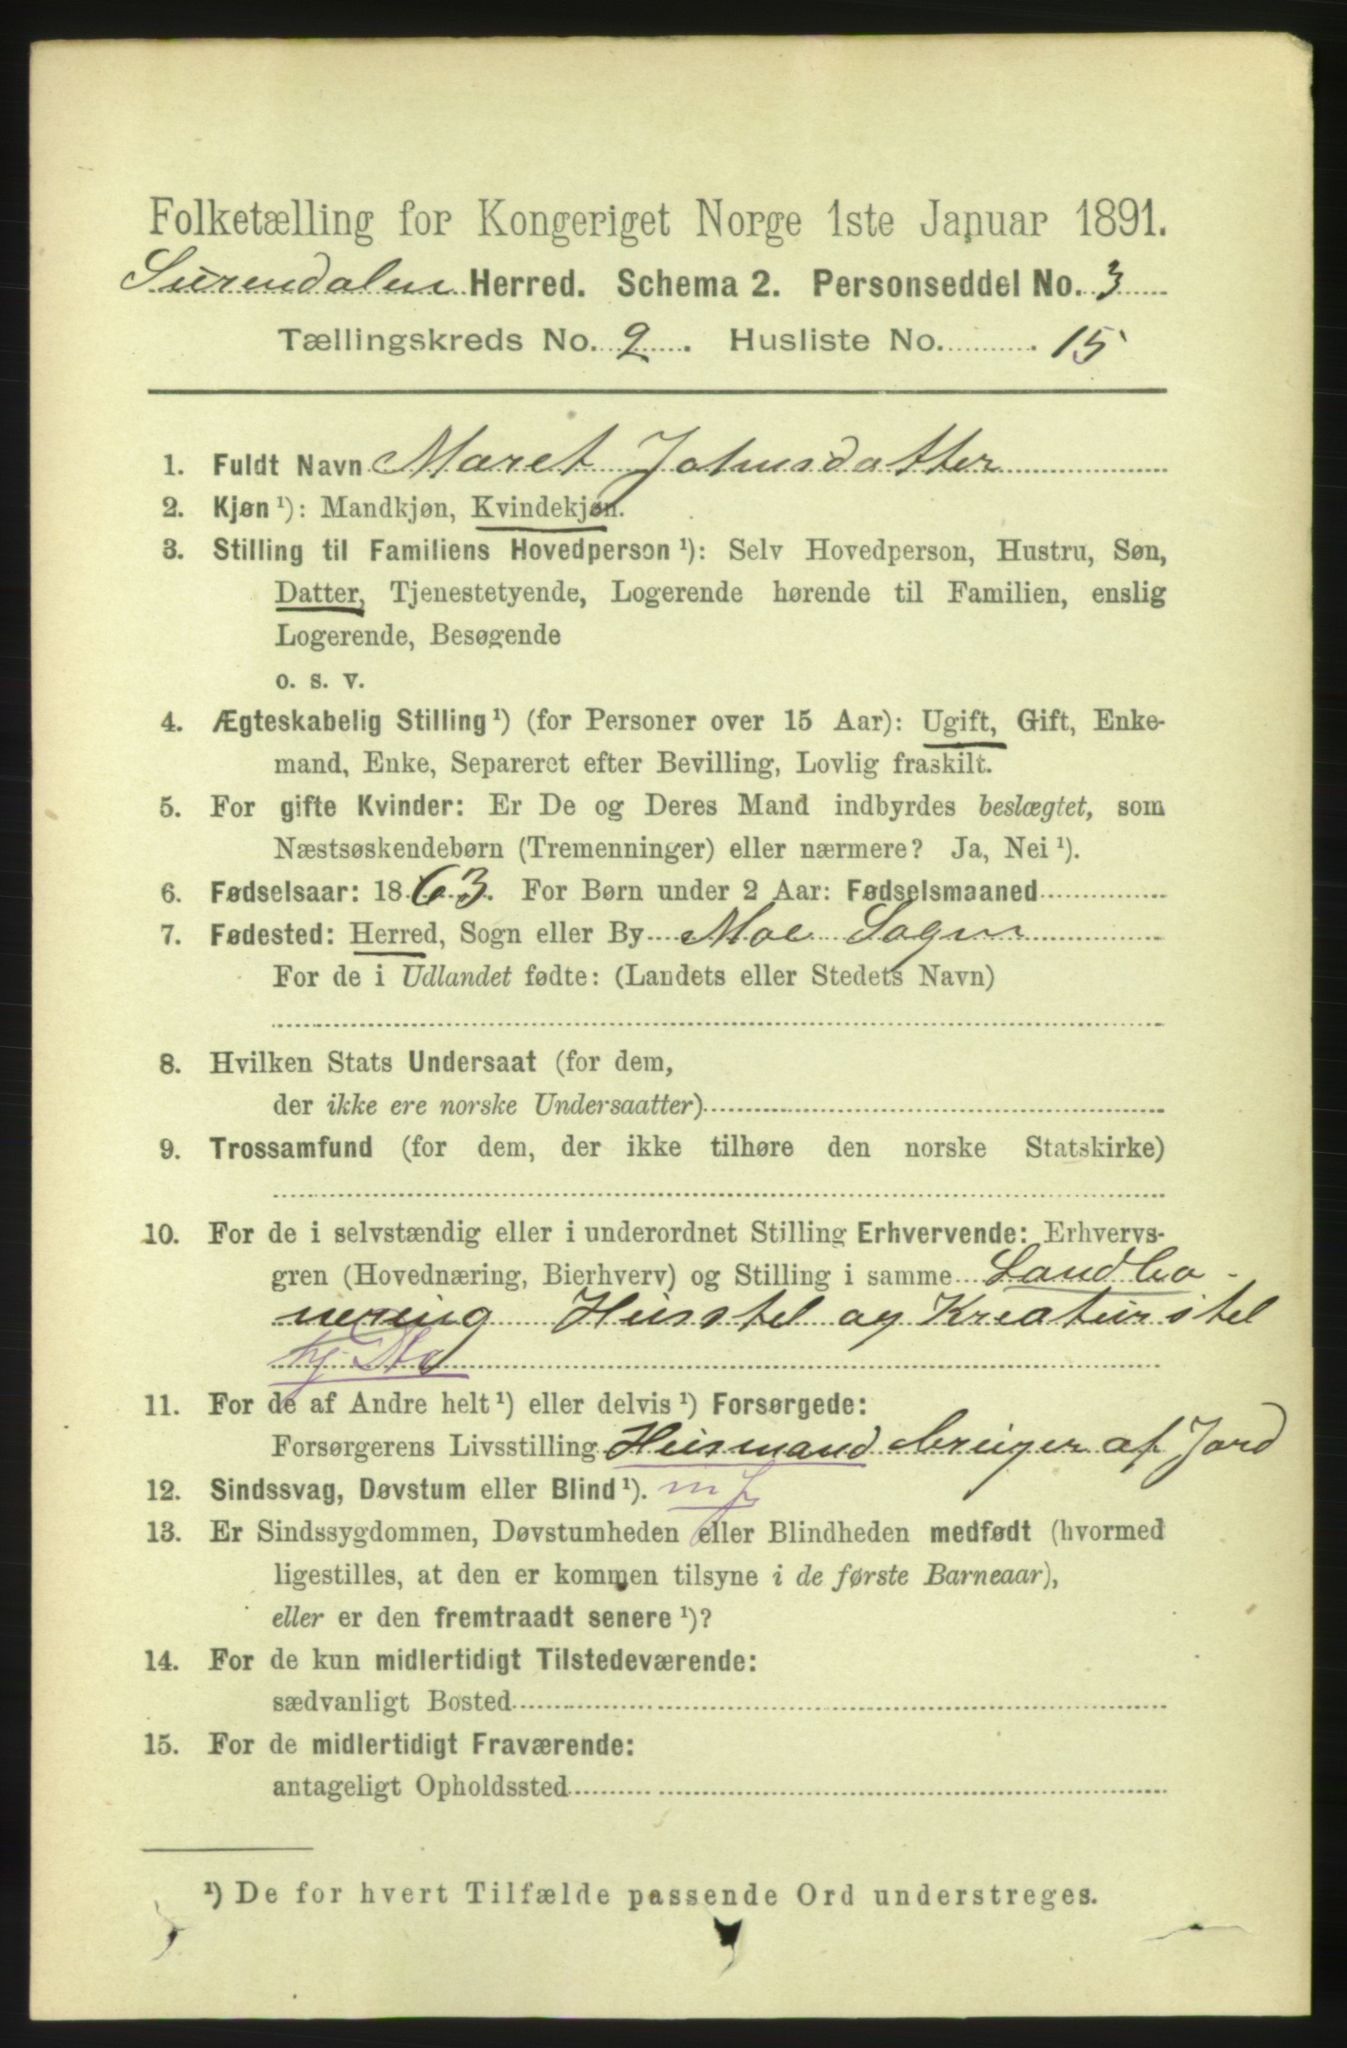 Folketælling for Kongeriget Norge 1ste Januar 1891.
Surendalen Herred. Schema 2. Personseddel No. 3
Tællingskreds No. 2. Husliste No. 15
1. Fuldt Navn Maret Johnsdatter
2. Kjøn ¹): Mandkjøn, Kvindekjøn.
3. Stilling til Familiens Hovedperson ¹): Selv Hovedperson, Hustru, Søn,
Datter, Tjenestetyende, Logerende hørende til Familien, enslig
Logerende, Besøgende
o. s. v.
4. Ægteskabelig Stilling ¹) (for Personer over 15 Aar): Ugift, Gift, Enke-
mand, Enke, Separeret efter Bevilling, Lovlig fraskilt.
5. For gifte Kvinder: Er De og Deres Mand indbyrdes beslægtet, som
Næstsøskendebørn (Tremenninger) eller nærmere? Ja, Nei ¹).
6. Fødselsaar: 1863. For Børn under 2 Aar: Fødselsmaaned
7. Fødested: Herred, Sogn eller By Moe Sogn
For de i Udlandet fødte: (Landets eller Stedets Navn)
8. Hvilken Stats Undersaat (for dem,
der ikke ere norske Undersaatter)
9. Trossamfund (for dem, der ikke tilhøre den norske Statskirke)
10. For de i selvstændig eller i underordnet Stilling Erhvervende: Erhvervs-
gren (Hovednæring, Bierhverv) og Stilling i samme Landbo-
nering Husstel og Kreaturstel
11. For de af Andre helt ¹) eller delvis ¹) Forsørgede:
Forsørgerens Livsstilling Husmand bruger af Jord
12. Sindssvag, Døvstum eller Blind ¹). m J
13. Er Sindssygdommen, Døvstumheden eller Blindheden medfødt (hvormed
ligestilles, at den er kommen tilsyne i de første Barneaar),
eller er den fremtraadt senere ¹)?
14. For de kun midlertidigt Tilstedeværende:
sædvanligt Bosted
15. For de midlertidigt Fraværende:
antageligt Opholdssted
¹) De for hvert Tilfælde passende Ord understreges.